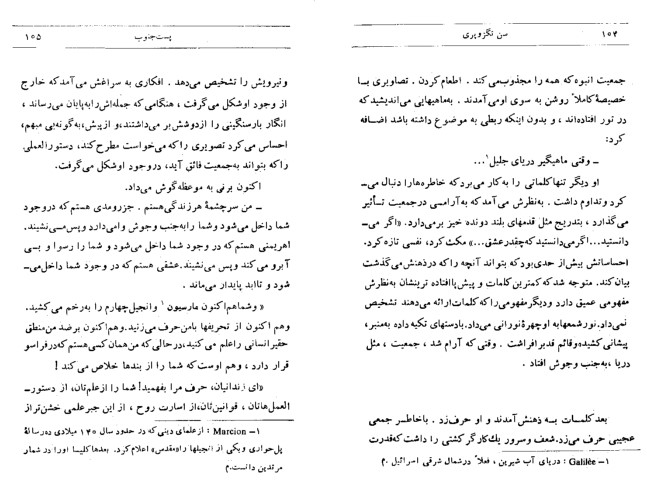 ۱۰۴ سن تگزوپری
جمعیت انبوه که همه را مجذوب می‌کند . اطعام کردن . تصاویری بـا
خصیصهٔ کاملاً روشن به سوی او می‌آمدند . به ماهیهایی می‌اندیشید که
در تور افتاده‌اند ، و بدون اینکه ربطی به موضوع داشته باشد اضافـه
کرد:
ــ وقتی ماهیگیر دریای جلیل۱...
او دیگر تنها کلماتی را به کار می‌برد که خاطره‌ها را دنبال مـی‌ـ
کرد و تداوم داشت . به نظرش می‌آمد که به آرامی در جمعیت تـأثیر
می‌گذارد ، بتدریج مثل قدمهای بلند دونده خیز برمی‌دارد. «اگر مـی‌ـ
دانستید...اگر می‌دانستید که چقدر عشق...» مکث کرد، نفسی تازه کرد.
احساساتش بیش از حدی بود که بتواند آنچه را که در ذهنش می‌گذشت
بیان کند. متوجه شد که کمترین کلمات و پیش پا افتاده ترینشان به نظرش
مفهومی عمیق دارد و دیگر مفهومی را که کلمات ارائه می‌دهند تشخیص
نمی‌داد. نور شمعها به او چهرهٔ نورانی می‌داد. با دستهای تکیه داده به منبر،
پیشانی کشیده و قائم قد بر افراشت . وقتی که آرام شد ، جمعیت ، مثل
دریا ، به جنب و جوش افتاد .
بعد کلمـات بـه ذهنش آمدند و او حرف زد . با خاطـر جمعی
عجیبی حرف می‌زد. شعف و سرور یك کارگر کشتی را داشت که قدرت
۱ــ Galilée : دریای آب شیرین ، فعلاً در شمال شرقی اسرائیل .م
پست جنوب ۱۰۵
و نیرویش را تشخیص می‌دهد . افکاری به سراغش می‌آمد که خارج
از وجود او شکل می‌گرفت ، هنگامی که جمله‌اش را به پایان می‌رساند ،
انگار بار سنگینی را از دوشش بر می‌داشتند، و از پیش، به گونه‌یی مبهم،
احساس می‌کرد تصویری را که می‌خواست مطرح کند، دستورالعملی
را که بتواند به جمعیت فائق آید، در وجود او شکل می‌گرفت.
اکنون برنی به موعظه گوش می‌داد.
ــ من سرچشمهٔ هر زندگی هستم . جزر و مدی هستم که در وجود
شما داخل می‌شود و شما را به جنب وجوش وا می‌دارد و پس می‌نشیند.
اهریمنی هستم که در وجود شما داخل می‌شود و شما را رسوا و بـی
آبرو می‌کند و پس می‌نشیند. عشقی هستم که در وجود شما داخل می‌ـ
شود و تا ابد پایدار می‌ماند .
« و شما هم اکنون مارسیون۱ و انجیل چهارم را به رخم می‌کشید.
و هم اکنون از تحریفها با من حرف می‌زنید. و هم اکنون بر ضد من منطق
حقیر انسانی را علم می‌کنید، در حالی که من همان کسی هستم که در فراسو
قرار دارد ، و هم اوست که شما را از بندها خلاص می‌کند !
«ای زندانیان، حرف مرا بفهمید! شما را از علم‌تان، از دستورـ
العمل‌هاتان ، قوانین‌تان، از اسارت روح ، از این جبر علمی خشن‌تر از
۱ــ Marcion : از علمای دینی که در حدود سال ۱۴۰ میلادی ده رسالهٔ
پل حواری و یکی از انجیلها را «مقدس» اعلام کرد. بعدها کلیسا او را در شمار
مرتدین دانست.م